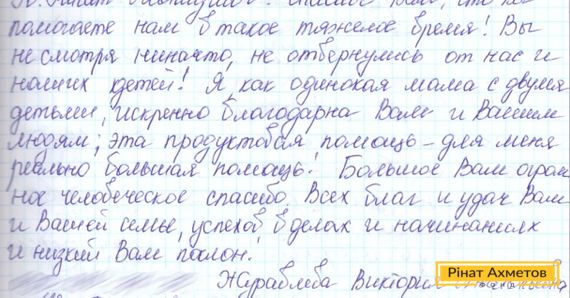 помогаете нам в такое тяжелое время! Вы
не смотря ниначто, не отвернулись от нас и
наших детей! Я, как одинокая мама с двумя
детьми, искренно благодарна Вам и Вашим
людям; эта продуктовая помощь – для меня
реально большая помощь! Большое Вам огром
ное человеческое спасибо. Всех благ и удач Вам
и Вашей семье, успехов в делах и начинаниях
и низкий Вам поклон!
Журавлева Виктория
Рінат Ахметов
Фонд